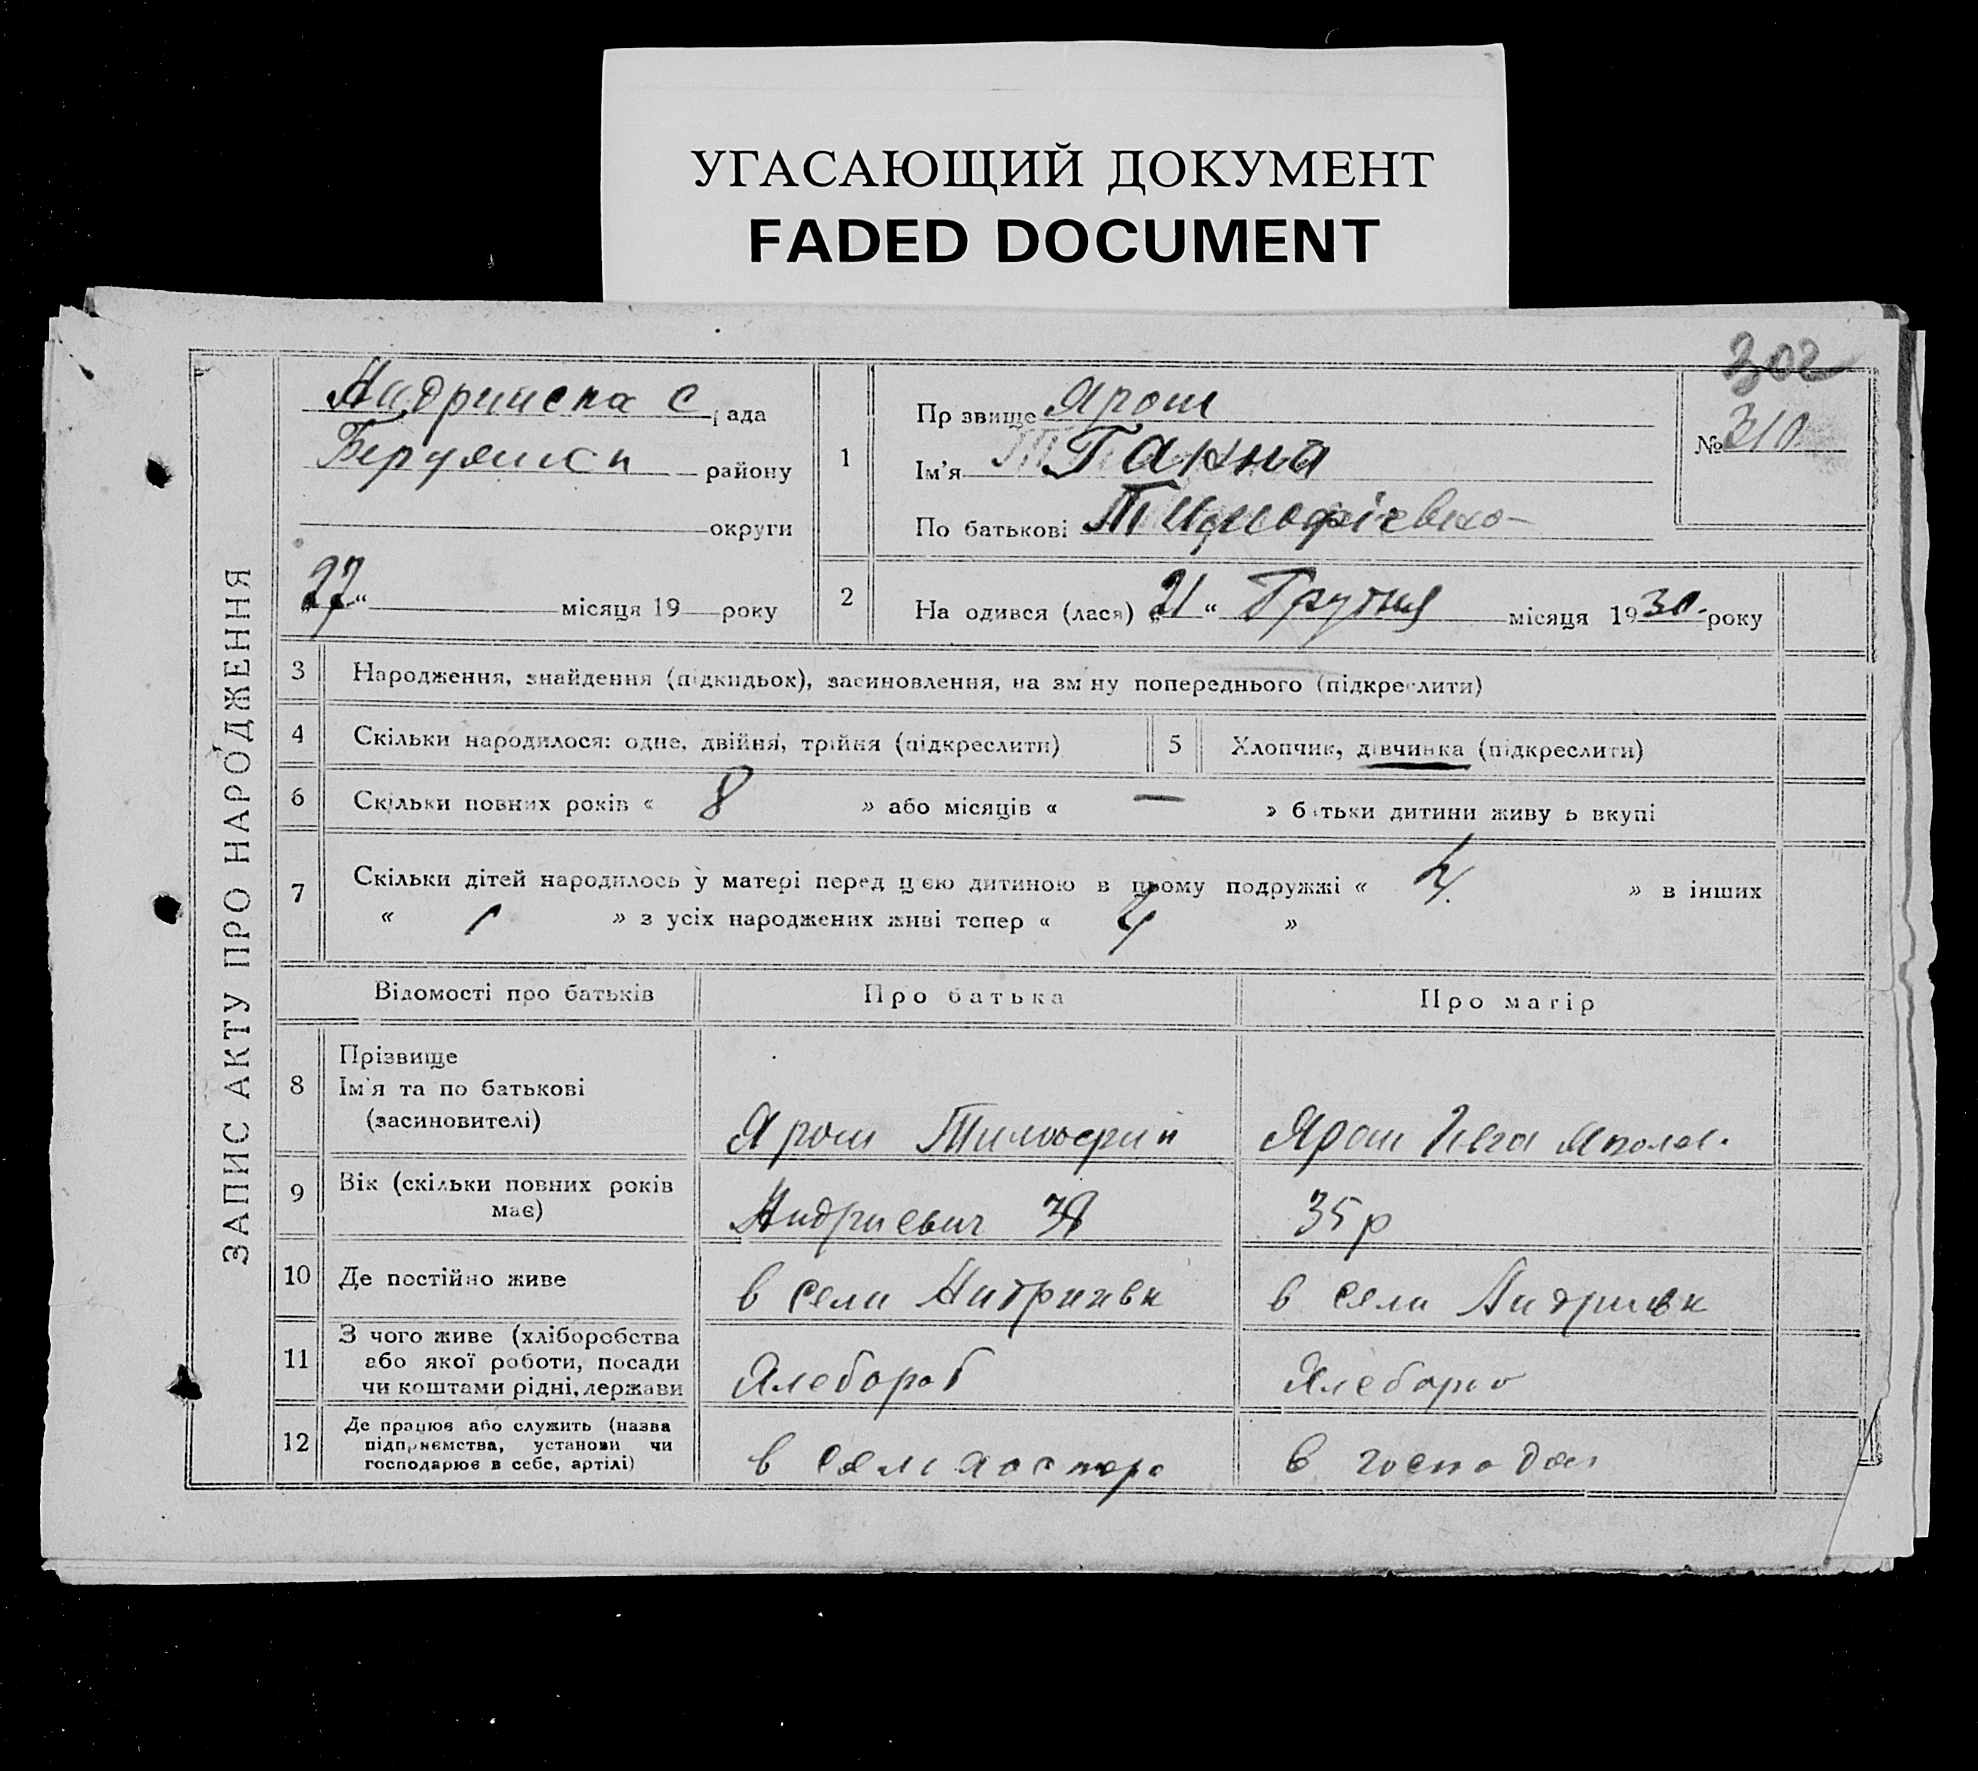 УГАСАЮЩИЙ ДОКУМЕНТ
FADED DOCUMENT
302
№ 310
ЗАПИС АКТУ ПРО НАРОДЖЕННЯ
с рада
району
округи
27 “ місяця 19 року
1
Прізвище Ярош
Ім’я Ганна
По батькові Тимофієвна
2
Народився (лася) „ 21 “ Грудня місяця 1930 року
3 Народження, знайдення (підкидьох), засиновлення, на зміну попереднього (підкреслити)
4 Скільки народилося: одне, двійня, трійня (підкреслити)
5 Хлопчик, дівчинка (підкреслити)
6 Скільки повних років « 8 » або місяців « — » батьки дитини живуть вкупі
7 Скільки дітей народилось у матері перед цією дитиною в цьому подружжі « 4 » в інших
« » з усіх народжених живі тепер « 4 »
Відомості про батьків Про батька Про матір
8 Прізвище
Ім’я та по батькові
(засиновителі)
Ярош Тимофий
Ярош Ивга
9 Вік (скільки повних років
має)
Андриевич
35 р
10 Де постійно живе
в сели Андриивк
в сели Андривк
11 З чого живе (хліборобства
або якої роботи, посади
чи коштами рідні, держави
Хлебороб
12 Де працює або служить (назва
підприємства, установи чи
господарює в себе, артілі)
в
в господар